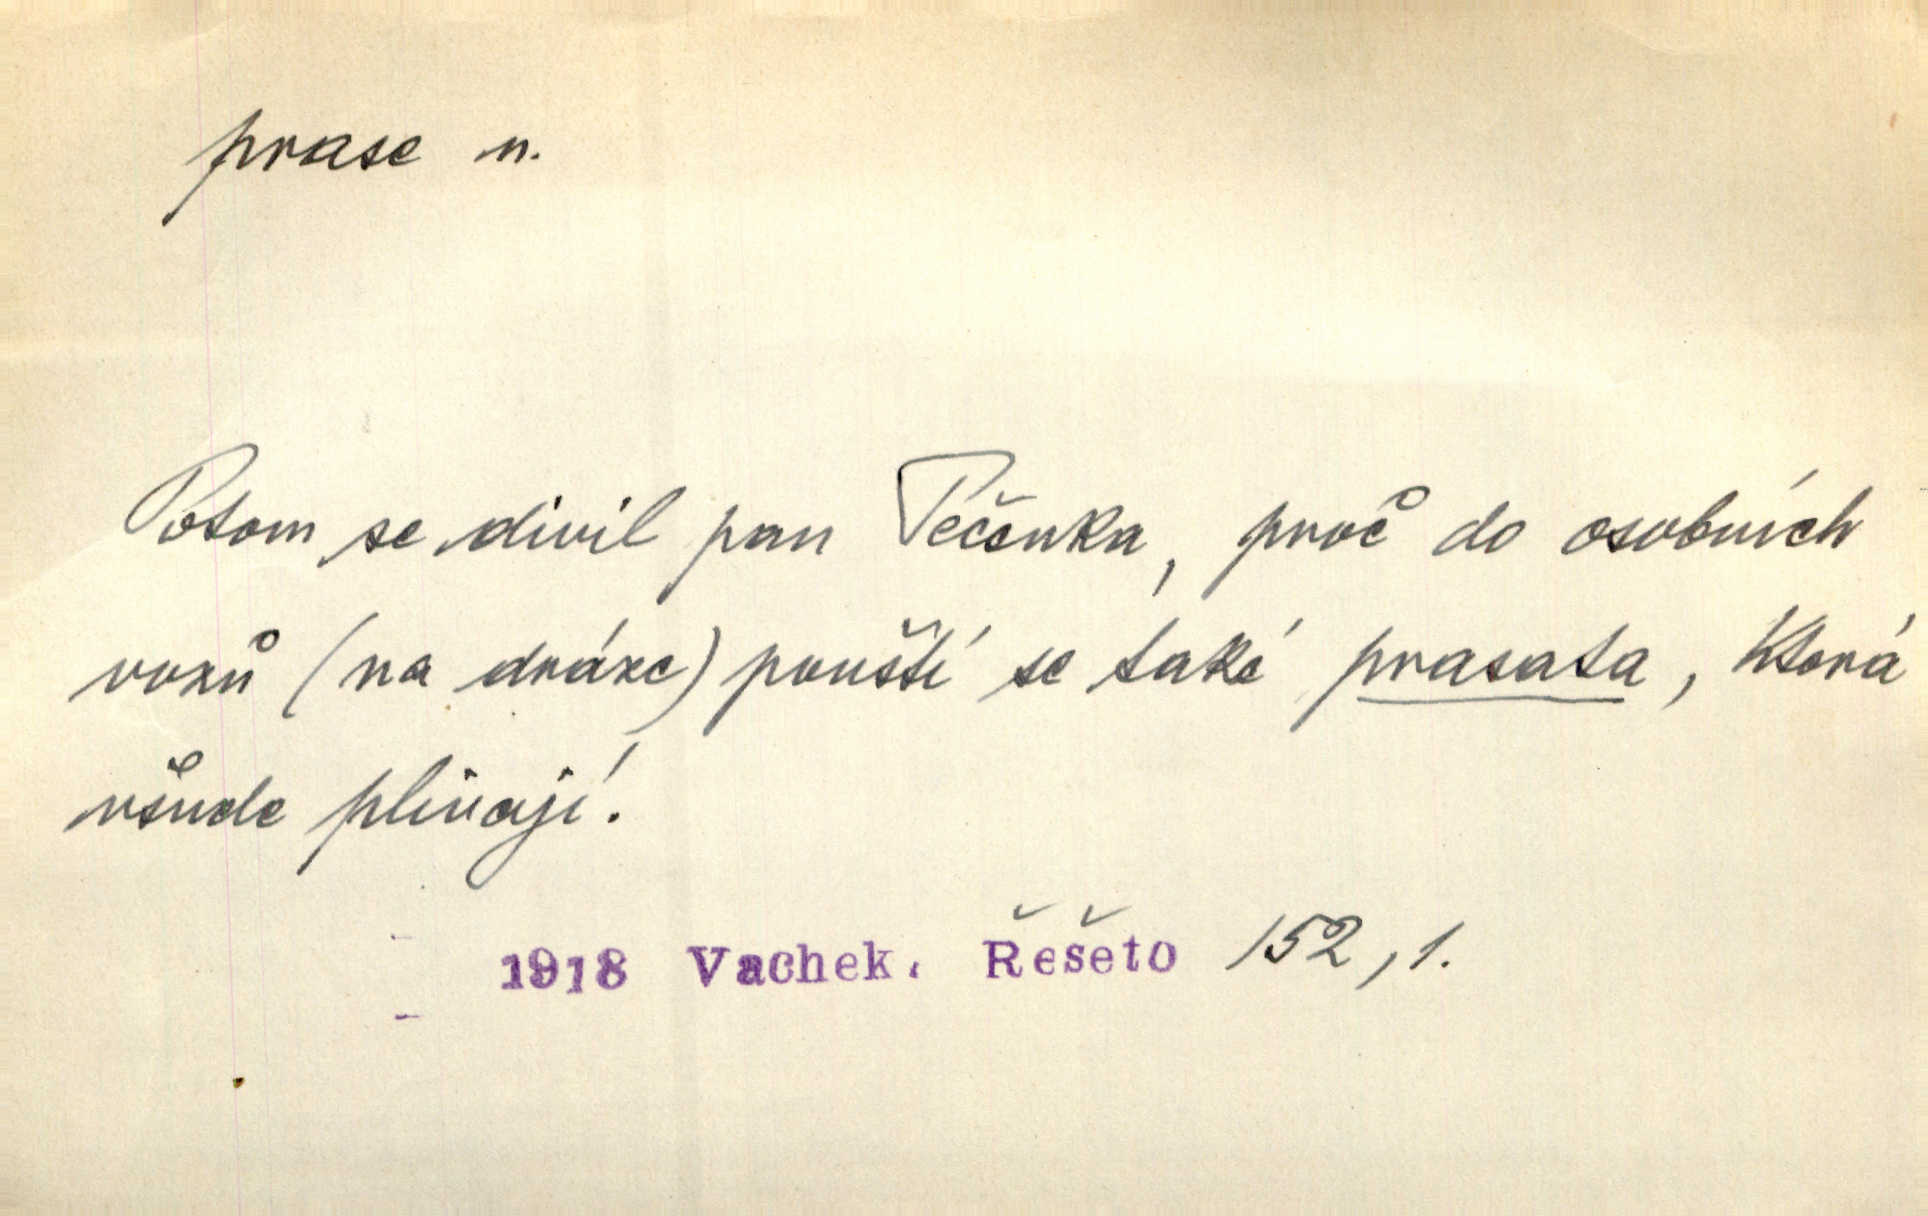 prase n.
Potom se divil pan Pečenka, proč do osobních
vozů (na dráze) pouští se také prasata, která
všude plivají!
1918 Vachek. Řešeto 152, 1.